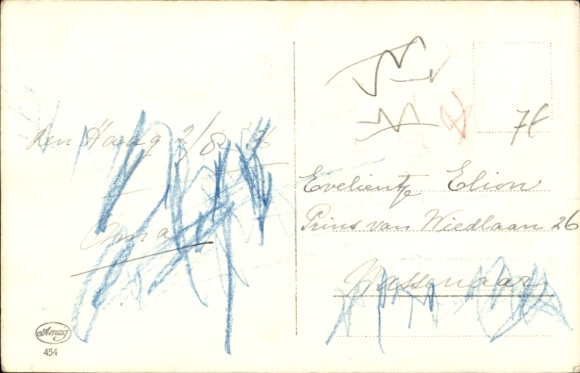 Den Haag 2/8 '26
Oma
7f
Evelientje Elion
Prins van Wiedlaan 26
Wassenaar
Amag
454